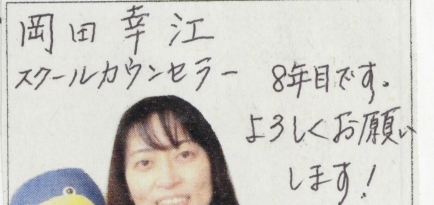 岡田幸江
スクールカウンセラー
8年目です。
よろしくお願い
します!